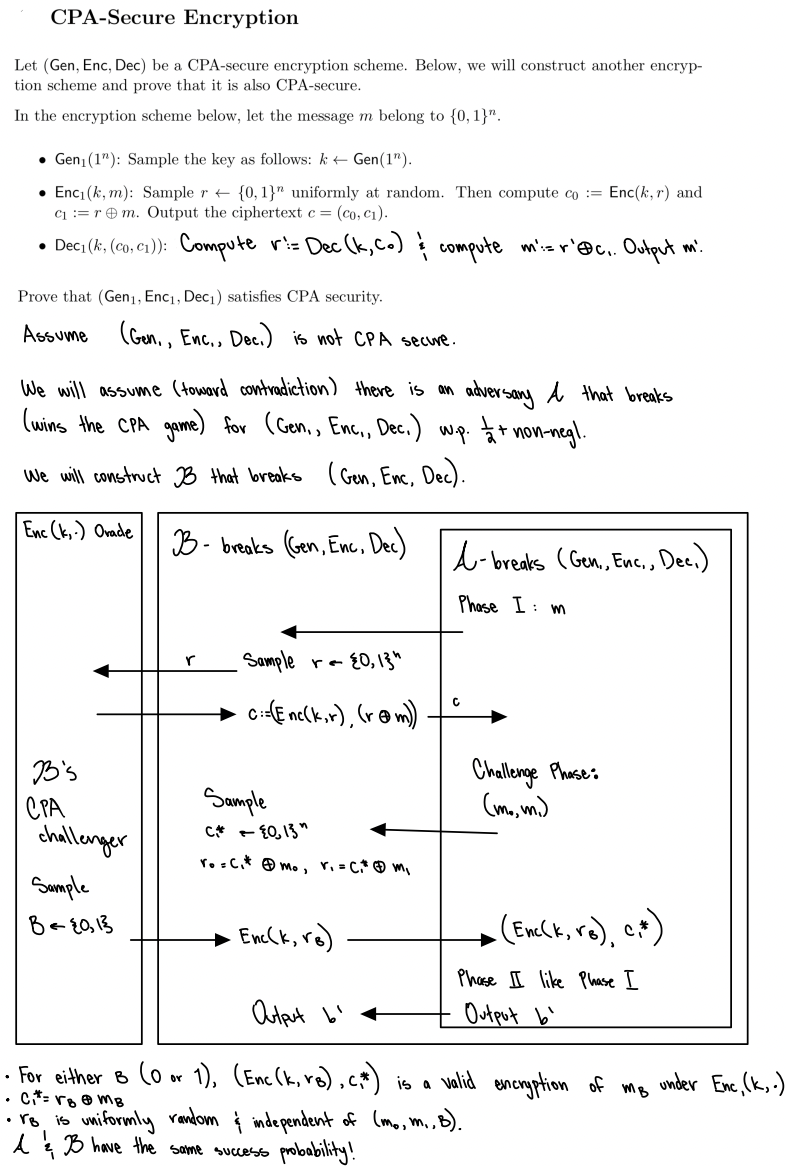 CPA-Secure Encryption
Let (Gen, Enc, Dec) be a CPA-secure encryption scheme. Below, we will construct another encryp-
tion scheme and prove that it is also CPA-secure.
In the encryption scheme below, let the message m belong to {0, 1}ⁿ.
• Gen₁(1ⁿ): Sample the key as follows: k ← Gen(1ⁿ).
• Enc₁(k, m): Sample r ← {0, 1}ⁿ uniformly at random. Then compute c₀ := Enc(k, r) and
c₁ := r ⊕ m. Output the ciphertext c = (c₀, c₁).
• Dec₁(k, (c₀, c₁)): Compute r' := Dec(k, c₀) & compute m' := r' ⊕ c₁. Output m'.
Prove that (Gen₁, Enc₁, Dec₁) satisfies CPA security.
Assume (Gen₁, Enc₁, Dec₁) is not CPA secure.
We will assume (toward contradiction) there is an adversary A that breaks
(wins the CPA game) for (Gen₁, Enc₁, Dec₁) w.p. 1/2 + non-negl.
We will construct B that breaks (Gen, Enc, Dec).
Enc(k,·) Oracle
B - breaks (Gen, Enc, Dec)
A - breaks (Gen₁, Enc₁, Dec₁)
Phase I : m
r Sample r ← {0,1}ⁿ
c := (Enc(k,r), (r ⊕ m)) c
B's
CPA
challenger
Sample
B ← {0,1}
Challenge Phase:
(m₀, m₁)
Sample
c₁* ← {0,1}ⁿ
r₀ = c₁* ⊕ m₀, r₁ = c₁* ⊕ m₁
Enc(k, r_B) (Enc(k, r_B), c₁*)
Phase II like Phase I
Output b' Output b'
• For either B (0 or 1), (Enc(k, r_B), c₁*) is a valid encryption of m_B under Enc₁(k,·)
• c₁* = r_B ⊕ m_B
• r_B is uniformly random & independent of (m₀, m₁, B).
A & B have the same success probability!